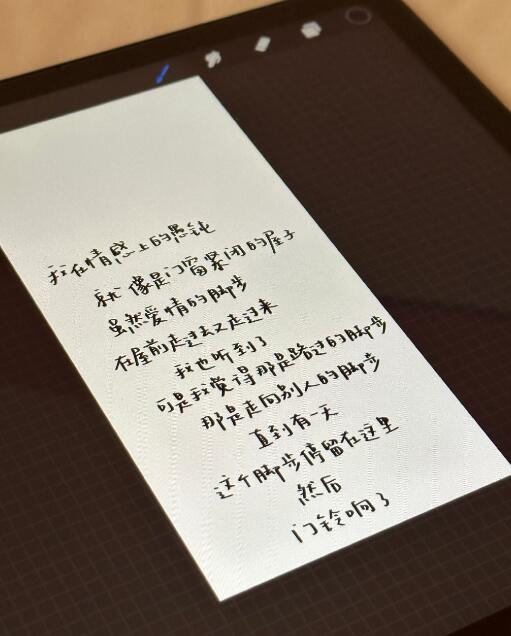 我在情感上的愚钝
就像是门窗紧闭的屋子
虽然爱情的脚步
在屋前走过去又走过来
我也听到了
可是我觉得那是路过的脚步
那是走向别人的脚步
直到有一天
这个脚步停留在这里
然后
门铃响了